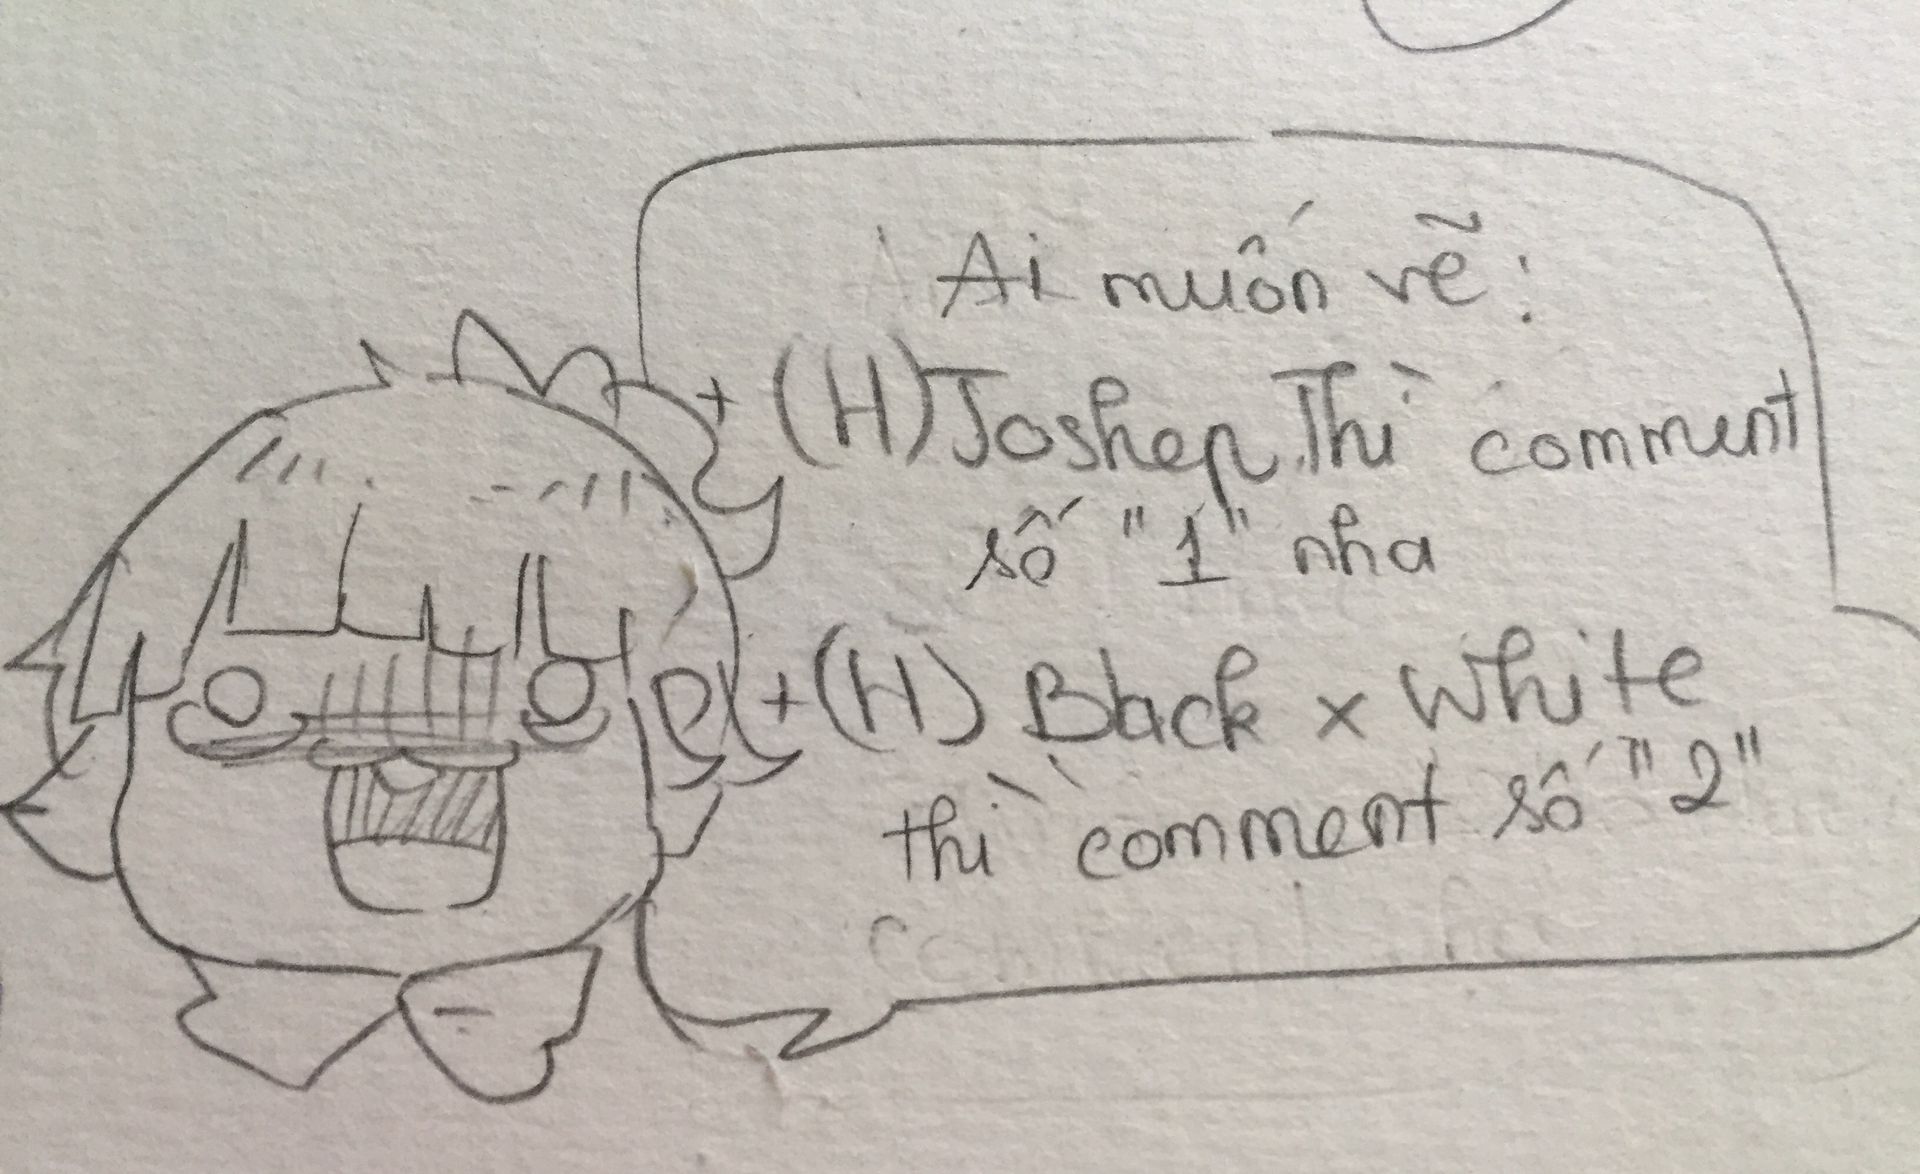 Ai muốn vẽ:
+ (H) Joshep. Thì comment
số "1" nha
+ (H) Black x White
thì comment số "2"